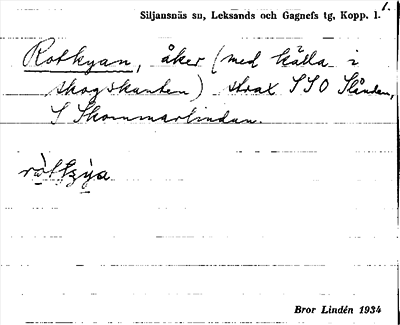 1.
Siljansnäs sn, Leksands och Gagnefs tg, Kopp. l.
Rotkyan, åker (med källa i
skogskanten) strax SSO Slånden,
S Skommarlindan.
ròtkỳa
Bror Lindén 1934